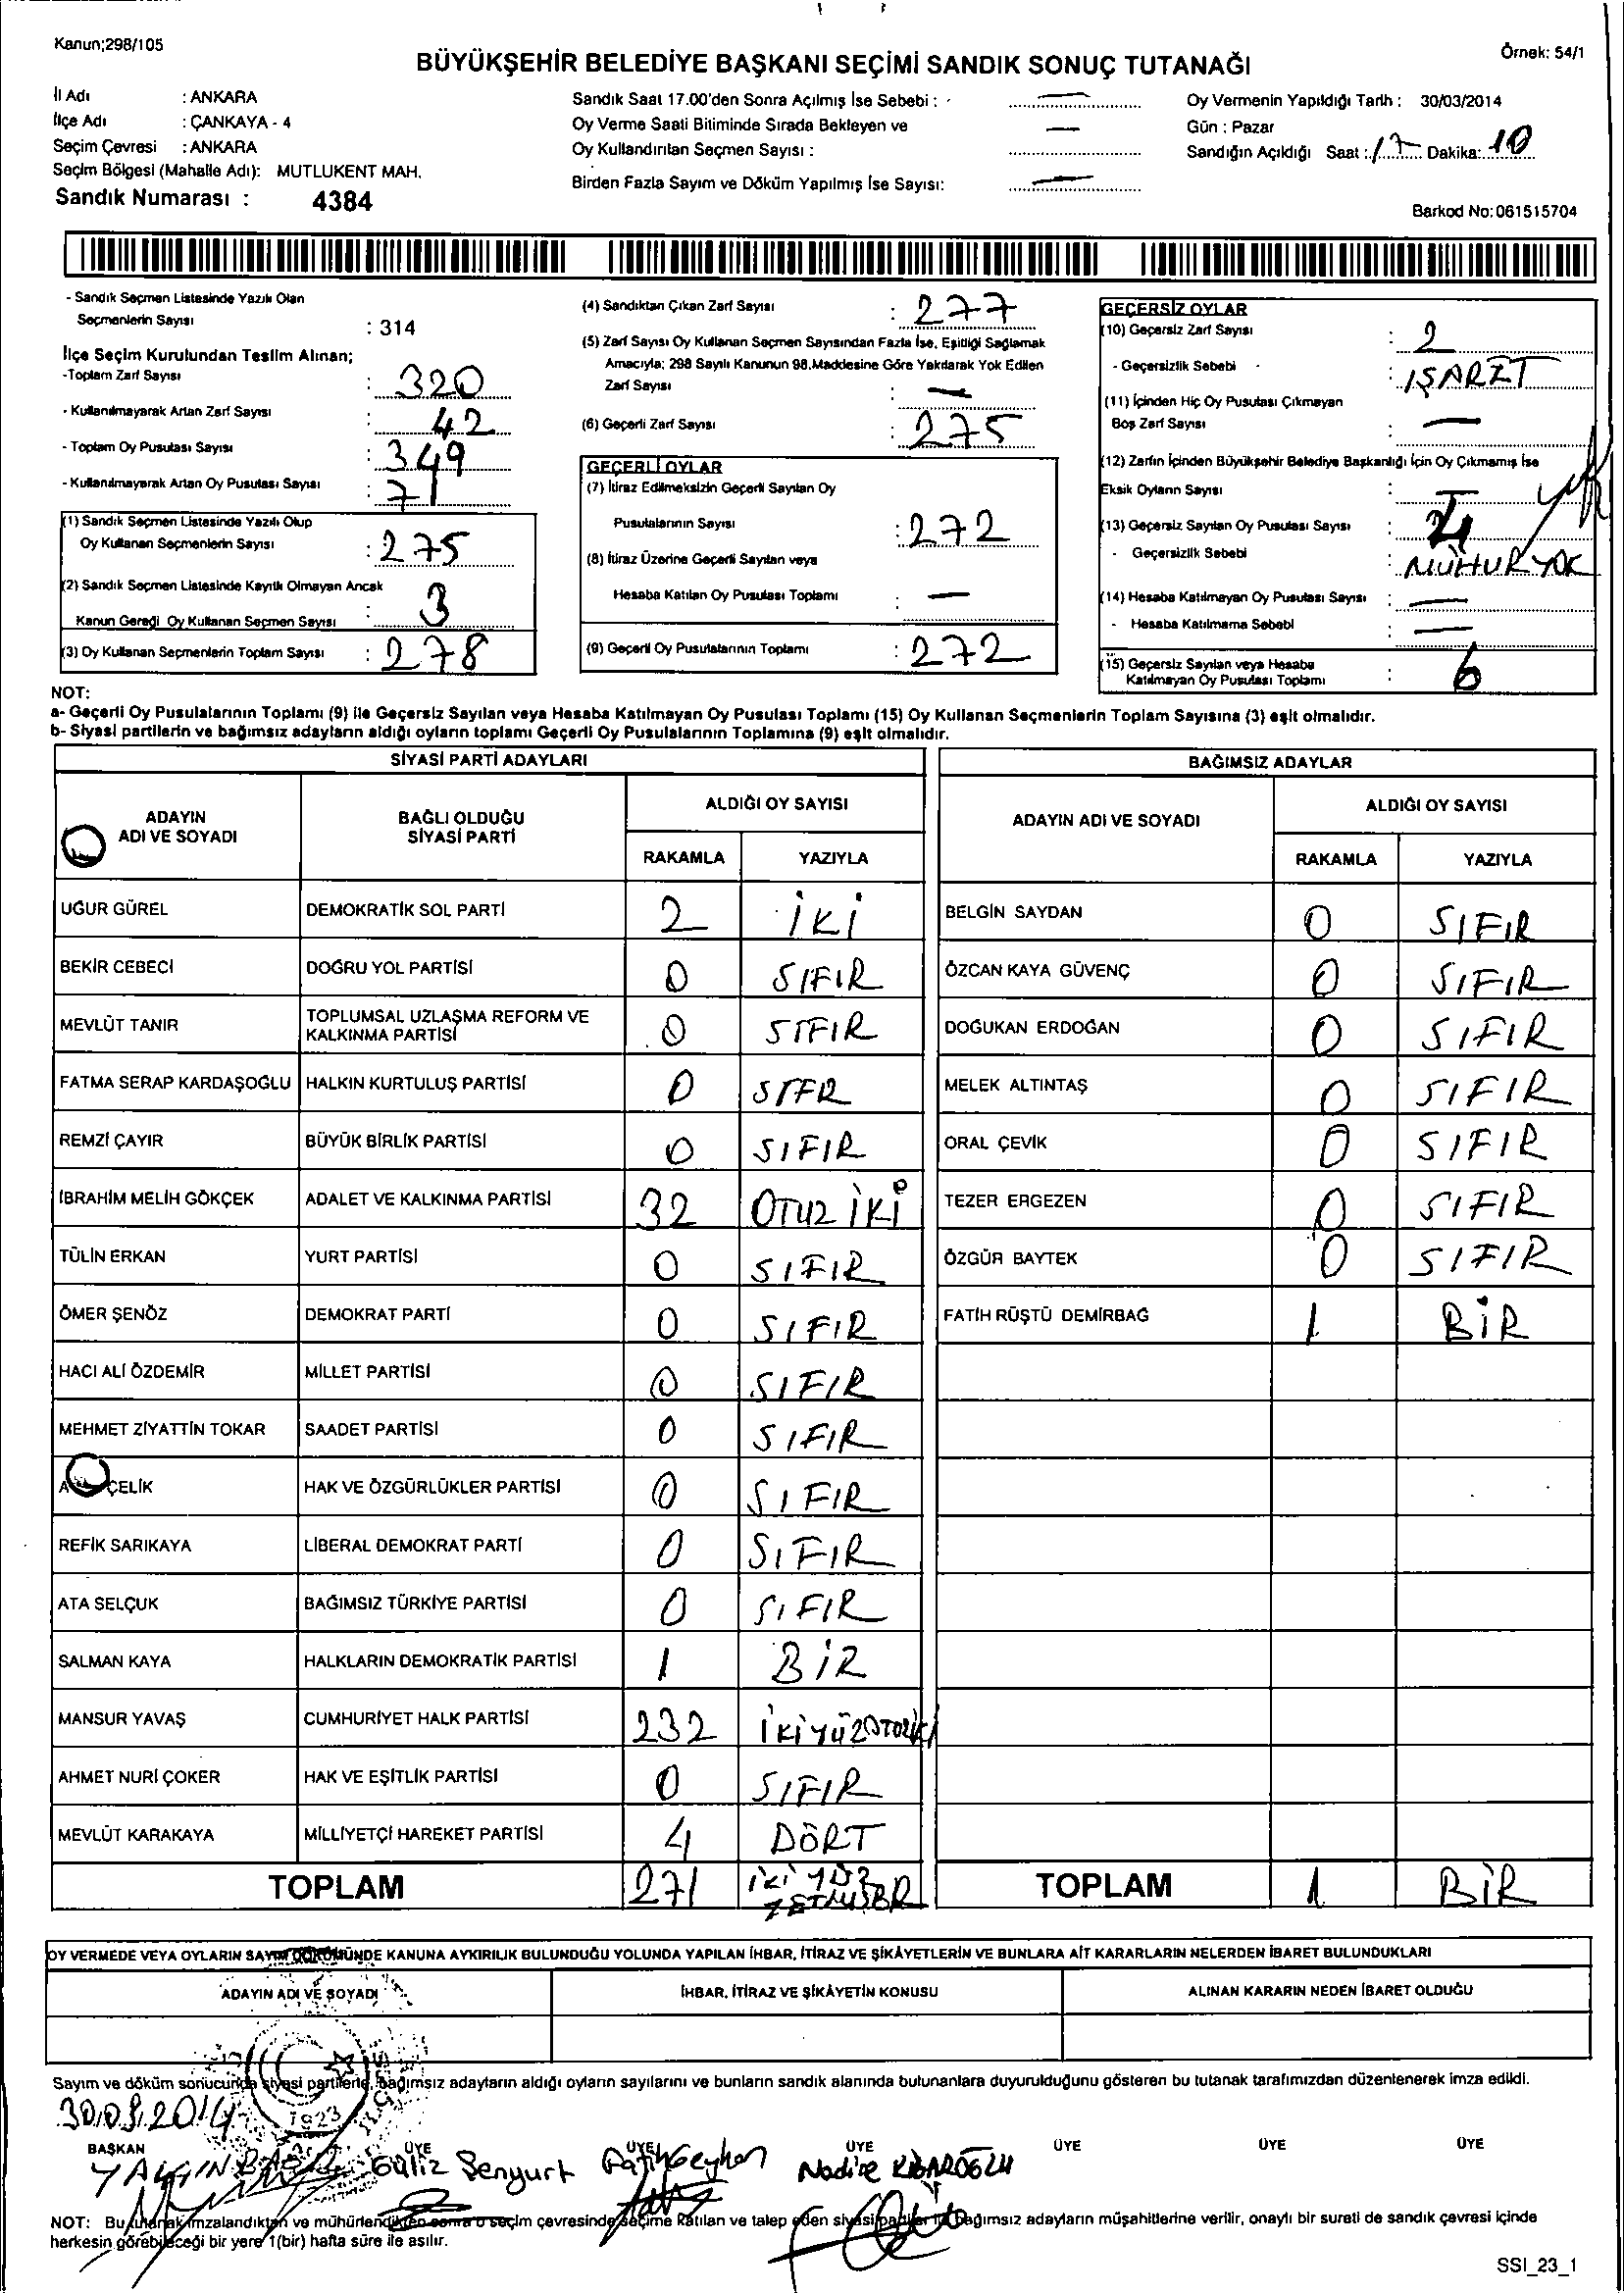 Kanun;298/105
Örnek: 54/1
BÜYÜKŞEHİR BELEDİYE BAŞKANI SEÇİMİ SANDIK SONUÇ TUTANAĞI
İl Adı : ANKARA
İlçe Adı : ÇANKAYA - 4
Seçim Çevresi : ANKARA
Seçim Bölgesi (Mahalle Adı): MUTLUKENT MAH.
Sandık Numarası : 4384
Sandık Saat 17.00'den Sonra Açılmış İse Sebebi : —
Oy Verme Saati Bitiminde Sırada Bekleyen ve
Oy Kullandırılan Seçmen Sayısı : —
Birden Fazla Sayım ve Döküm Yapılmış İse Sayısı: —
Oy Vermenin Yapıldığı Tarih : 30/03/2014
Gün : Pazar
Sandığın Açıldığı Saat : 17 Dakika: 10
Barkod No:061515704
- Sandık Seçmen Listesinde Yazılı Olan
Seçmenlerin Sayısı : 314
İlçe Seçim Kurulundan Teslim Alınan;
-Toplam Zarf Sayısı : 320
- Kullanılmayarak Artan Zarf Sayısı : 42
- Toplam Oy Pusulası Sayısı : 349
- Kullanılmayarak Artan Oy Pusulası Sayısı : 71
(1) Sandık Seçmen Listesinde Yazılı Olup
Oy Kullanan Seçmenlerin Sayısı : 275
(2) Sandık Seçmen Listesinde Kayıtlı Olmayan Ancak
Kanun Gereği Oy Kullanan Seçmen Sayısı : 3
(3) Oy Kullanan Seçmenlerin Toplam Sayısı : 278
(4) Sandıktan Çıkan Zarf Sayısı : 277
(5) Zarf Sayısı Oy Kullanan Seçmen Sayısından Fazla İse, Eşitliği Sağlamak
Amacıyla; 298 Sayılı Kanunun 98.Maddesine Göre Yakılarak Yok Edilen
Zarf Sayısı : —
(6) Geçerli Zarf Sayısı : 275
GEÇERLİ OYLAR
(7) İtiraz Edilmeksizin Geçerli Sayılan Oy
Pusulalarının Sayısı : 272
(8) İtiraz Üzerine Geçerli Sayılan veya
Hesaba Katılan Oy Pusulası Toplamı : —
(9) Geçerli Oy Pusulalarının Toplamı : 272
GEÇERSİZ OYLAR
(10) Geçersiz Zarf Sayısı : 2
- Geçersizlik Sebebi : IŞARZT
(11) İçinden Hiç Oy Pusulası Çıkmayan
Boş Zarf Sayısı : —
(12) Zarfın İçinden Büyükşehir Belediye Başkanlığı İçin Oy Çıkmamış İse
Eksik Oyların Sayısı :
(13) Geçersiz Sayılan Oy Pusulası Sayısı :
- Geçersizlik Sebebi : MÜHUR YOK
(14) Hesaba Katılmayan Oy Pusulası Sayısı : —
- Hesaba Katılmama Sebebi : —
(15) Geçersiz Sayılan veya Hesaba
Katılmayan Oy Pusulası Toplamı : 6
NOT:
a- Geçerli Oy Pusulalarının Toplamı (9) ile Geçersiz Sayılan veya Hesaba Katılmayan Oy Pusulası Toplamı (15) Oy Kullanan Seçmenlerin Toplam Sayısına (3) eşit olmalıdır.
b- Siyasi partilerin ve bağımsız adayların aldığı oyların toplamı Geçerli Oy Pusulalarının Toplamına (9) eşit olmalıdır.
SİYASİ PARTİ ADAYLARI
ADAYIN
ADI VE SOYADI
BAĞLI OLDUĞU
SİYASİ PARTİ
ALDIĞI OY SAYISI
RAKAMLA YAZIYLA
UĞUR GÜREL DEMOKRATİK SOL PARTİ 2 İKİ
BEKİR CEBECİ DOĞRU YOL PARTİSİ 0 SIFIR
MEVLÜT TANIR TOPLUMSAL UZLAŞMA REFORM VE
KALKINMA PARTİSİ 0 SIFIR
FATMA SERAP KARDAŞOĞLU HALKIN KURTULUŞ PARTİSİ 0 SIFR
REMZİ ÇAYIR BÜYÜK BİRLİK PARTİSİ 0 SIFIR
İBRAHİM MELİH GÖKÇEK ADALET VE KALKINMA PARTİSİ 32 OTUZ İKİ
TÜLİN ERKAN YURT PARTİSİ 0 SIFIR
ÖMER ŞENÖZ DEMOKRAT PARTİ 0 SIFIR
HACI ALİ ÖZDEMİR MİLLET PARTİSİ 0 SIFIR
MEHMET ZİYATTİN TOKAR SAADET PARTİSİ 0 SIFIR
ÇELİK HAK VE ÖZGÜRLÜKLER PARTİSİ 0 SIFIR
REFİK SARIKAYA LİBERAL DEMOKRAT PARTİ 0 SIFIR
ATA SELÇUK BAĞIMSIZ TÜRKİYE PARTİSİ 0 SIFIR
SALMAN KAYA HALKLARIN DEMOKRATİK PARTİSİ 1 BİR
MANSUR YAVAŞ CUMHURİYET HALK PARTİSİ 232 İKİYÜZOTUZİKİ
AHMET NURİ ÇOKER HAK VE EŞİTLİK PARTİSİ 0 SIFIR
MEVLÜT KARAKAYA MİLLİYETÇİ HAREKET PARTİSİ 4 DÖRT
TOPLAM 271 İKİ YÜZ
BAĞIMSIZ ADAYLAR
ADAYIN ADI VE SOYADI
ALDIĞI OY SAYISI
RAKAMLA YAZIYLA
BELGİN SAYDAN 0 SIFIR
ÖZCAN KAYA GÜVENÇ 0 SIFIR
DOĞUKAN ERDOĞAN 0 SIFIR
MELEK ALTINTAŞ 0 SIFIR
ORAL ÇEVİK 0 SIFIR
TEZER ERGEZEN 0 SIFIR
ÖZGÜR BAYTEK 0 SIFIR
FATİH RÜŞTÜ DEMİRBAĞ 1 BİR
TOPLAM 1 BİR
OY VERMEDE VEYA OYLARIN SAYIM DÖKÜMÜNDE KANUNA AYKIRILIK BULUNDUĞU YOLUNDA YAPILAN İHBAR, İTİRAZ VE ŞİKÂYETLERİN VE BUNLARA AİT KARARLARIN NELERDEN İBARET BULUNDUKLARI
ADAYIN ADI VE SOYADI
İHBAR, İTİRAZ VE ŞİKÂYETİN KONUSU
ALINAN KARARIN NEDEN İBARET OLDUĞU
Sayım ve döküm sonucunda siyasi partilerle, bağımsız adayların aldığı oyların sayılarını ve bunların sandık alanında bulunanlara duyurulduğunu gösteren bu tutanak tarafımızdan düzenlenerek imza edildi.
30.03.2014
1923
BAŞKAN ÜYE ÜYE ÜYE ÜYE ÜYE ÜYE
YALÇIN Güliz Şenyurt Fatih Geyhan Nadire KİBAROĞLU
NOT: Bu tutanak imzalandıktan ve mühürlendikten sonra o seçim çevresinde seçime katılan ve talep eden siyasi partiler ile bağımsız adayların müşahitlerine verilir, onaylı bir sureti de sandık çevresi içinde
herkesin görebileceği bir yere 1(bir) hafta süre ile asılır.
SSI_23_1